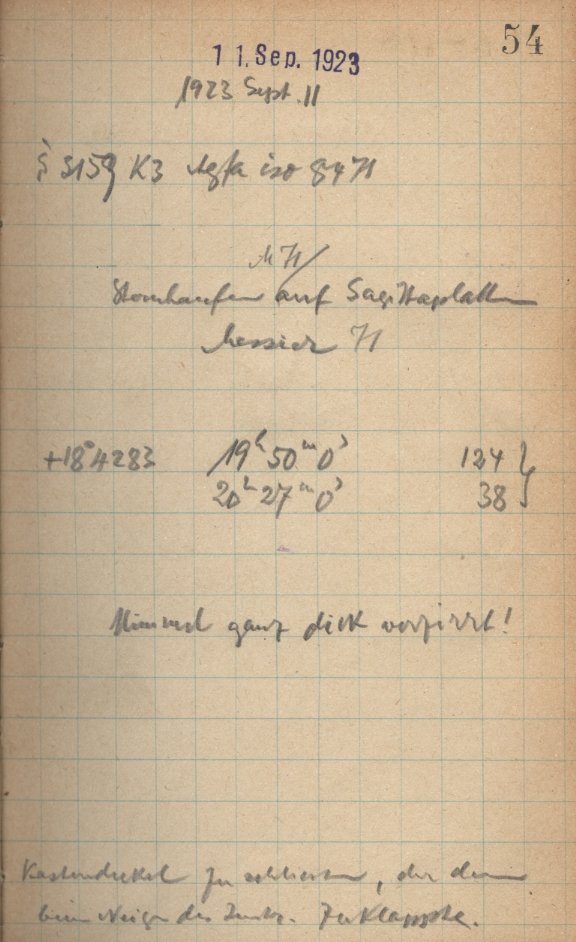 54
11. Sep. 1923
1923 Sept. 11
S 3159 K3 Agfa iso 8471
M 71
Sternhaufen auf Sagittaplatten
Messier 71
+18°4283 19ʰ 50ᵐ 0ˢ 124 }
20ʰ 27ᵐ 0ˢ 38
Himmel ganz dick verzirrt!
Kastendeckel zu schliessen, der dem
beim Neigen des zuklappte.